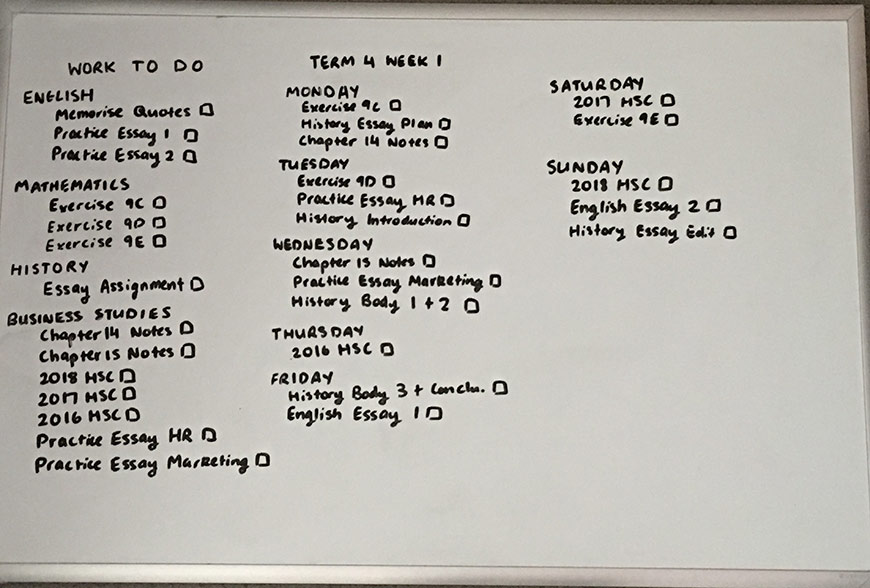 WORK TO DO
ENGLISH
Memorise Quotes
Practice Essay 1
Practice Essay 2
MATHEMATICS
Exercise 9C
Exercise 9D
Exercise 9E
HISTORY
Essay Assignment
BUSINESS STUDIES
Chapter 14 Notes
Chapter 15 Notes
2018 HSC
2017 HSC
2016 HSC
Practice Essay HR
Practice Essay Marketing
TERM 4 WEEK 1
MONDAY
Exercise 9C
History Essay Plan
Chapter 14 Notes
TUESDAY
Exercise 9D
Practice Essay HR
History Introduction
WEDNESDAY
Chapter 15 Notes
Practice Essay Marketing
History Body 1 + 2
THURSDAY
2016 HSC
FRIDAY
History Body 3 + Conclu.
English Essay 1
SATURDAY
2017 HSC
Exercise 9E
SUNDAY
2018 HSC
English Essay 2
History Essay Edit